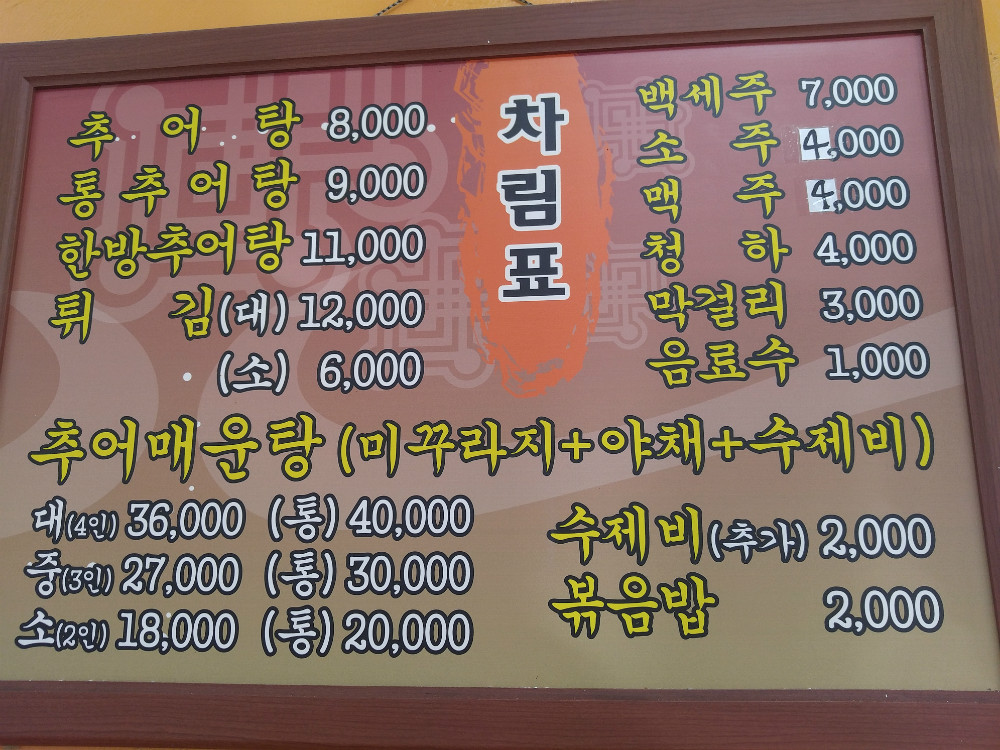 차림표
추어탕 8,000
통추어탕 9,000
한방추어탕 11,000
튀김(대) 12,000
(소) 6,000
백세주 7,000
소주 4,000
맥주 4,000
청하 4,000
막걸리 3,000
음료수 1,000
추어매운탕(미꾸라지+야채+수제비)
대(4인) 36,000 (통) 40,000
중(3인) 27,000 (통) 30,000
소(2인) 18,000 (통) 20,000
수제비(추가) 2,000
볶음밥 2,000